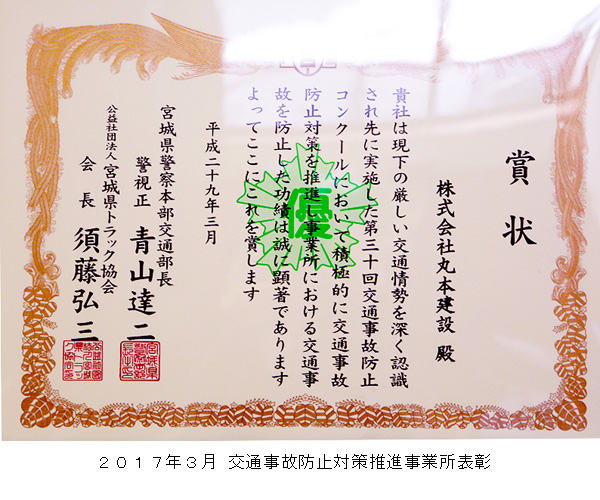 賞状
株式会社丸本建設 殿
貴社は現下の厳しい交通情勢を深く認識
され先に実施した第三十回交通事故防止
コンクールにおいて積極的に交通事故
防止対策を推進し事業所における交通事
故を防止した功績は誠に顕著であります
よってここにこれを賞します
優
平成二十九年三月
宮城県警察本部交通部長
警視正 青山達二
公益社団法人 宮城県トラック協会
会長 須藤弘三
2017年3月 交通事故防止対策推進事業所表彰